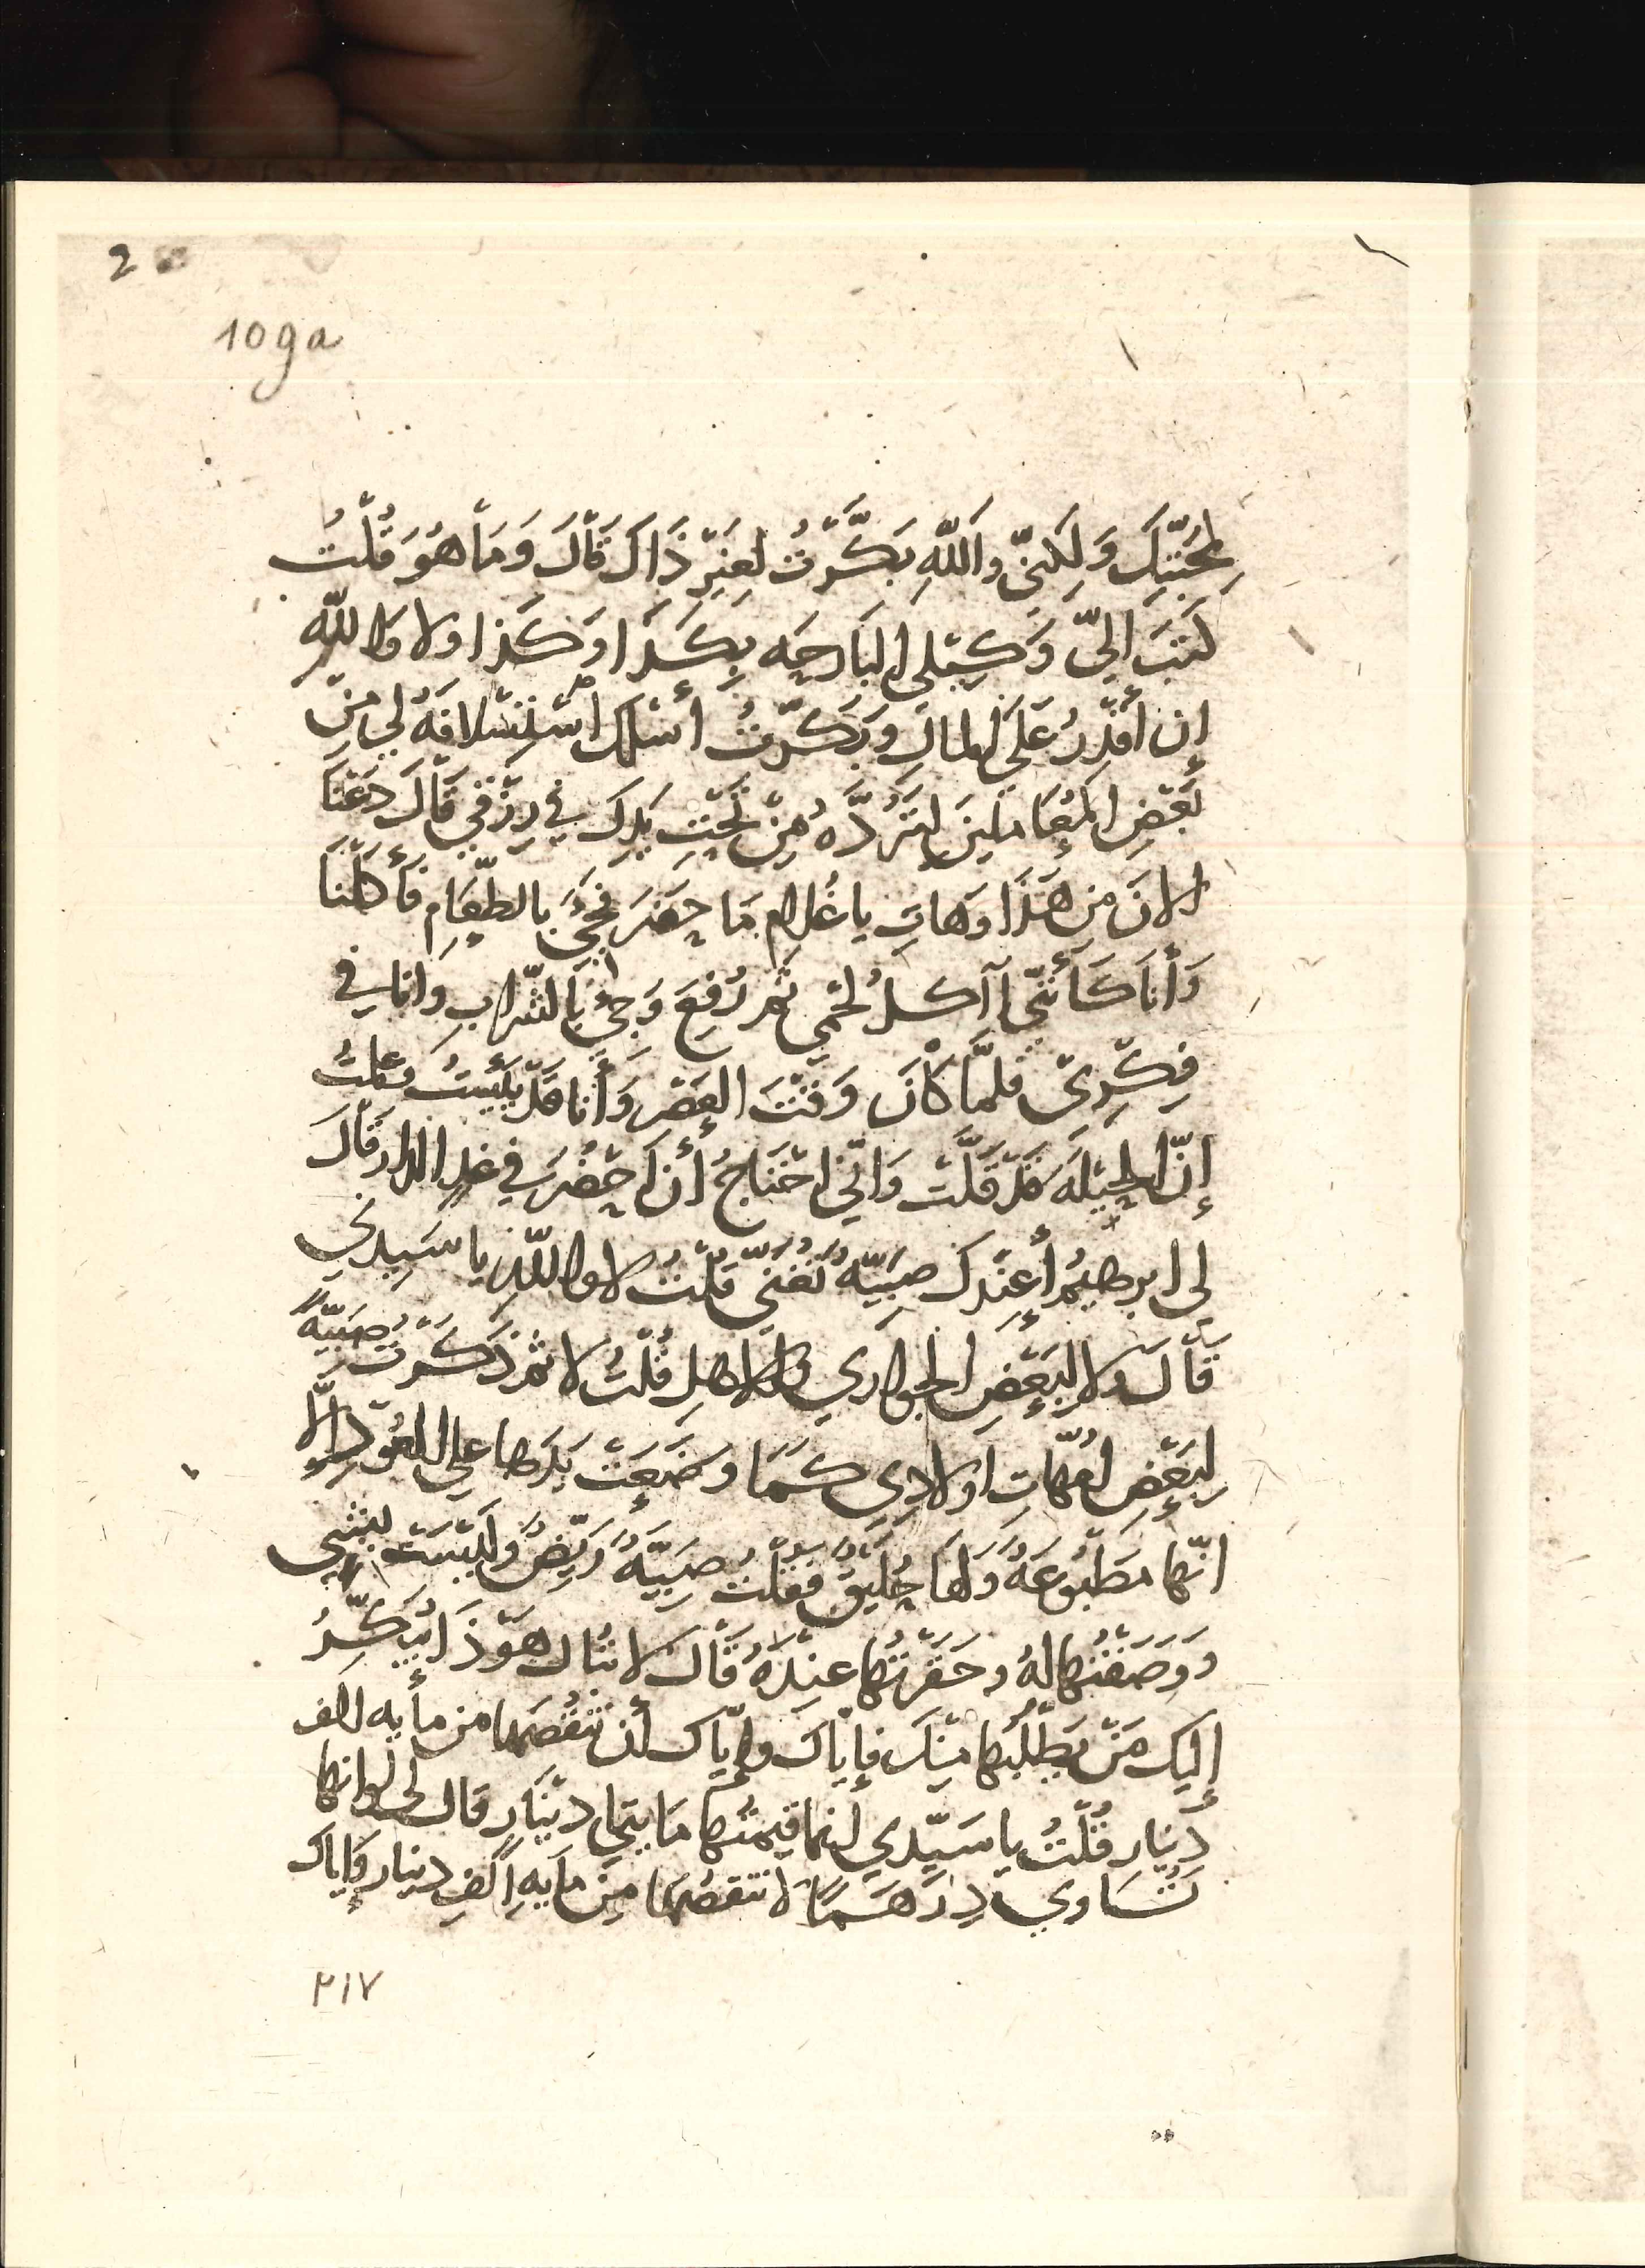 2
109a
لمحبتك وَلكنّي والله بَكّرتُ لغيرِ ذَاكَ قَالَ وَمَا هُوَ قُلْتُ
كَتبَ اليّ وَكِيلي البَارحَه بِكَذَا وَكَذا ولا والله
إن أقدِرُ عَلى المالِ وَبَكّرتُ أسئلك اسْتِسْلافَهُ لي منْ
بَعْضِ المُعَامَلينَ لتَرُدَّهُ مِنْ تَحْتِ يَدِكَ في رِزْقي قَالَ دَعْنَا
الانَ مِن هَذَا وَهَاتِ يا غُلام مَا حَضَرَ فجئَ بالطّعَامِ فَأكَلنَا
وَأنَا كَأنّني آكلُ لحْمي ثمَّ رُفِعَ وَجئَ بالشّرابِ وانا في
فِكْرِي فلمَّا كَانَ وَقْتَ العَصْرِ وَأنا قَدْ يَئِسْتُ وَقُلتُ
إنّ الحِيْلَةَ قَدْ قَلَّتْ وَانّي احْتَاجُ أنْ احْضُرَ في غدٍ الدار قَالَ
لي ابرهيمُ أعِنْدَك صَبيّةٌ تُغَنّي قلْتُ لا والله يا سَيدي
قَالَ ولا لبَعْضِ الجواري والاهلِ قُلتُ لا ثمّ ذَكَرْتُ صَبيّةً
لبَعْضِ امّهاتِ اولادِي كَمَا وضَعَتْ يَدَها على العُوْدِ إلّا
انّها مَطْبُوعَةٌ وَلهَا حُلَيْقٌ فقلْتُ صَبيّةٌ رَيِّضٌ وَلَيْسَتْ بشي
وَوَصَفْتُها لهُ وحَقّرْتُها عنْدَهُ قَالَ لا تُبال هَوّ ذَا يُبَكّرُ
إليكَ مَنْ يَطْلُبُها مِنْكَ فإيّاكَ وإيّاكَ أن تنْقُصَها من مأيه الف
دِيْنارٍ قُلْتُ يا سَيّدي إنما قيمتُها مَايتَا دِيْنَارٍ قال لي لو انها
تُسَاوي دِرْهَمًا لا تنقصْها مِن مَايَهِ الفِ دينارٍ وَإيَاكَ
٢١٧